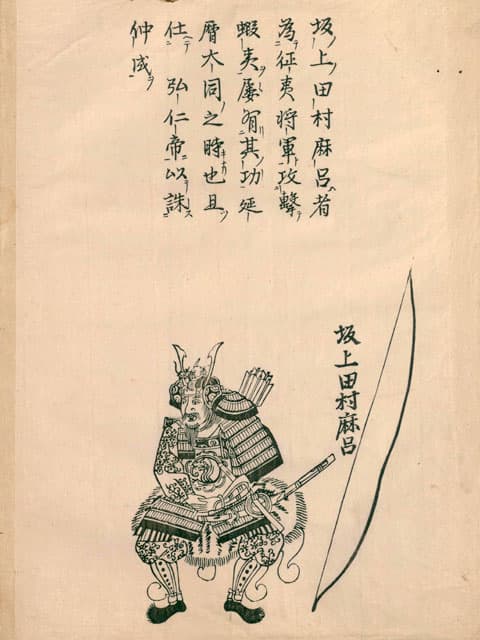 坂上田村麻呂者
為征夷将軍攻擊
蝦夷屡有其功延
暦大同之時也且
仕弘仁帝以誅
仲成
坂上田村麻呂